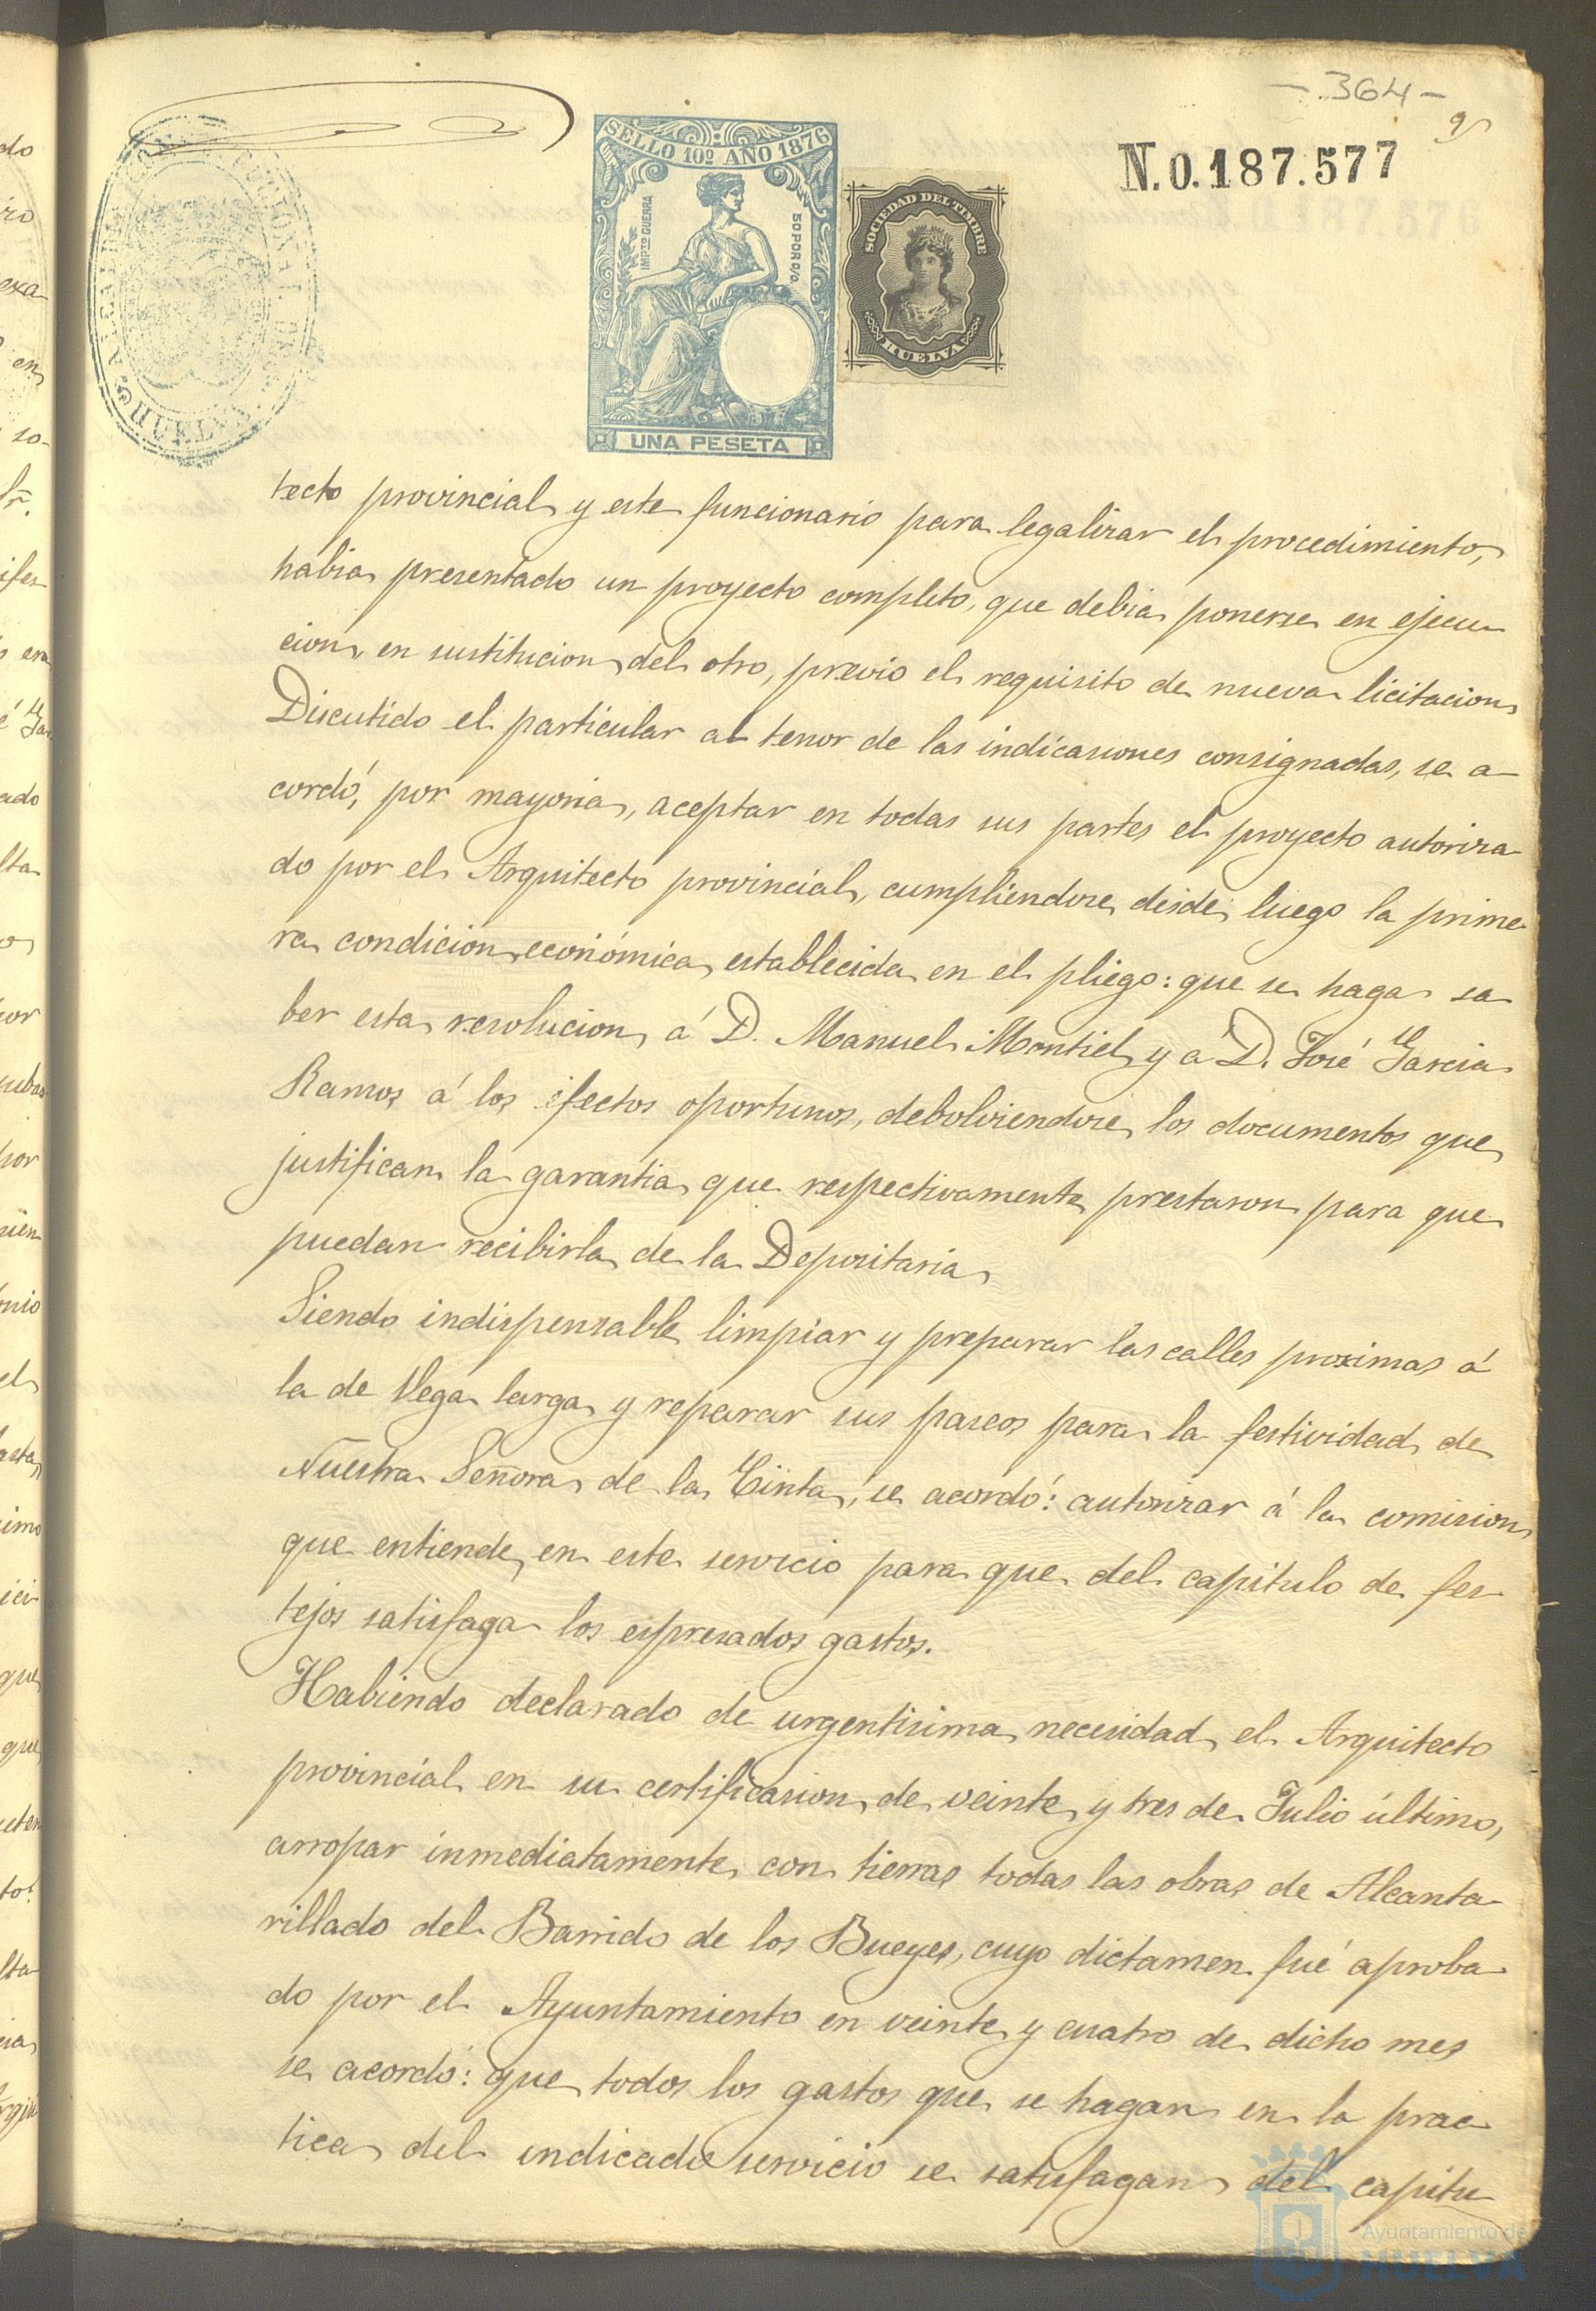 - 364 -
SELLO 10º AÑO 1876
IMPTO GUERRA
50 POR O/O.
UNA PESETA
SOCIEDAD DEL TIMBRE
HUELVA
N.0.187.577
tecto provincial y este funcionario para legalizar el procedimiento,
habia presentado un proyecto completo, que debia ponerse en ejecu
cion, en sustitucion del otro, previo el requisito de nueva licitacion
Discutido el particular al tenor de las indicasiones consignadas, se a-
cordó, por mayoria, aceptar en todas sus partes el proyecto autoriza
do por el Arquitecto provincial, cumpliendose desde luego la prime-
ra condicion económica establecida en el pliego: que se haga sa
ber esta resolucion á D. Manuel Montiel y a D. José Garcia
Ramos á los efectos oportunos, debolviendose los documentos que
justifican la garantia que respectivamente prestaron para que
puedan recibirla de la Depositaria
Siendo indispensable limpiar y preparar las calles proximas á
la de Vega larga y reparar sus paseos para la festividad de
Nuestra Señora de la Cinta, se acordó: autorizar á la comision
que entiende en este servicio para que del capitulo de fes
tejos satisfaga los espresados gastos.
Habiendo declarado de urgentisima necesidad el Arquitecto
provincial en su certificasion de veinte y tres de Julio último,
arropar inmediatamente con tierras todas las obras de Alcanta-
rillado del Barrido de los Bueyes, cuyo dictamen fué aproba
do por el Ayuntamiento en veinte y cuatro de dicho mes
se acordó: que todos los gastos que se hagan en la prac
tica del indicado servicio se satisfagan del capitu
Ayuntamiento de
HUELVA